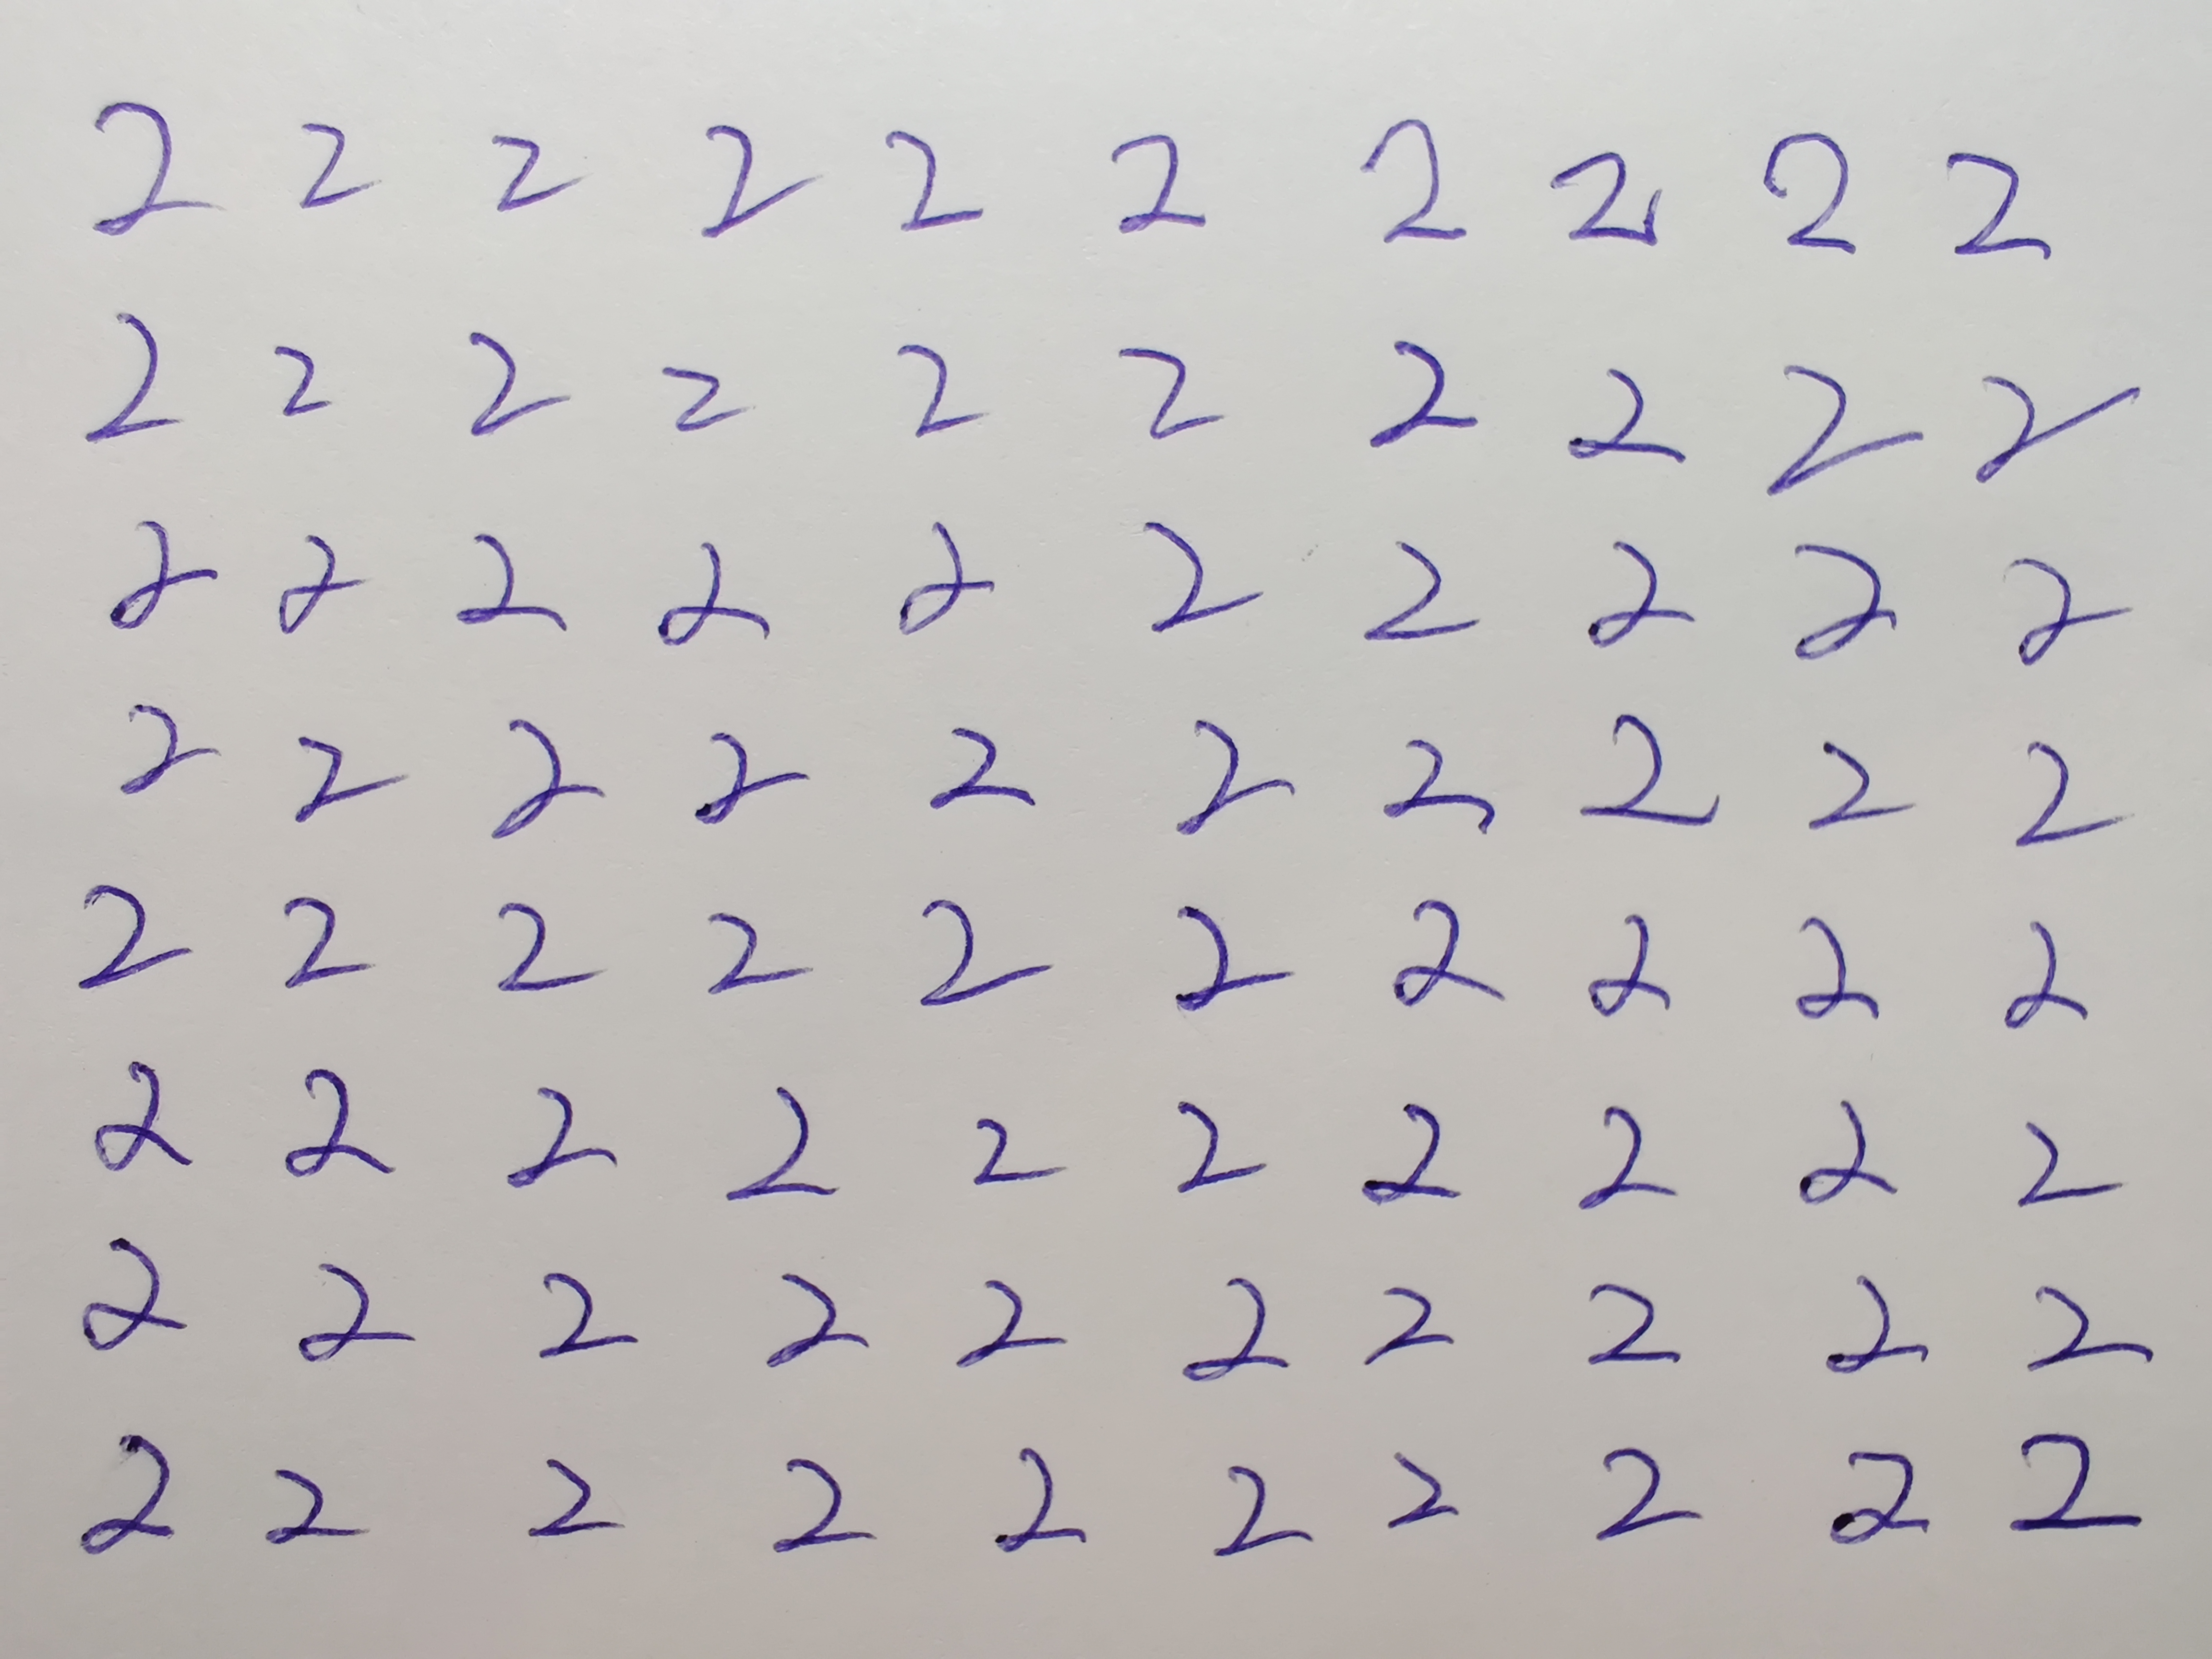 2 2 2 2 2 2 2 2 2 2
2 2 2 2 2 2 2 2 2 2
2 2 2 2 2 2 2 2 2 2
2 2 2 2 2 2 2 2 2 2
2 2 2 2 2 2 2 2 2 2
2 2 2 2 2 2 2 2 2 2
2 2 2 2 2 2 2 2 2 2
2 2 2 2 2 2 2 2 2 2